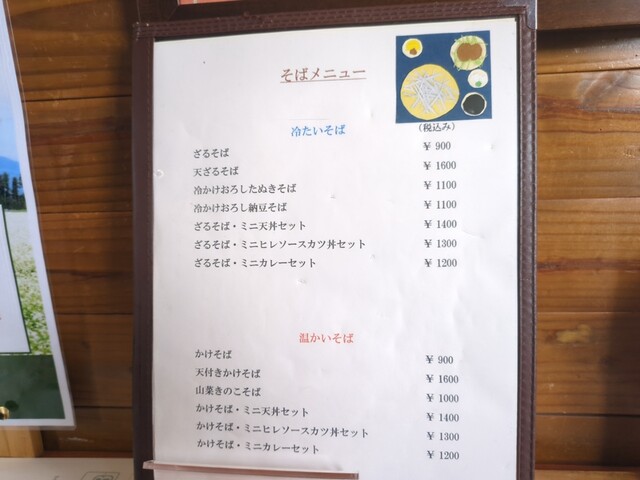 そばメニュー
冷たいそば (税込み)
ざるそば ¥ 900
天ざるそば ¥ 1600
冷かけおろしたぬきそば ¥ 1100
冷かけおろし納豆そば ¥ 1100
ざるそば・ミニ天丼セット ¥ 1400
ざるそば・ミニヒレソースカツ丼セット ¥ 1300
ざるそば・ミニカレーセット ¥ 1200
温かいそば
かけそば ¥ 900
天付きかけそば ¥ 1600
山菜きのこそば ¥ 1000
かけそば・ミニ天丼セット ¥ 1400
かけそば・ミニヒレソースカツ丼セット ¥ 1300
かけそば・ミニカレーセット ¥ 1200